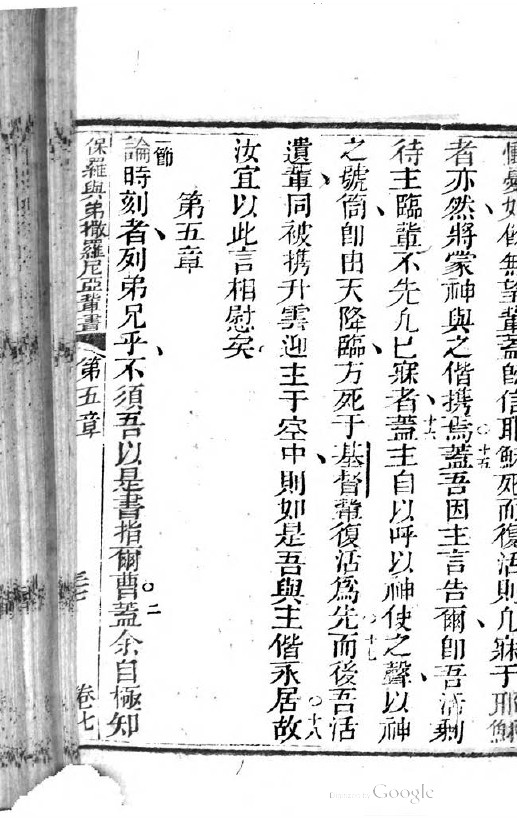 無望輩蓋旣信耶穌死而復活則凡寐于耶穌
十五
者亦然將蒙神與之偕携焉蓋吾因主言告爾卽吾活剩
待主臨輩不先凡已寐者蓋主自以呼以神使之聲以神
十六
之號筒卽由天降臨方死于基督輩復活爲先而後吾活
十七
遺輩同被携升雲迎主于空中則如是吾與主偕永居故
十八
汝宜以此言相慰矣
第五章
一節
論時刻者列弟兄乎不須吾以是書指爾曹蓋余自極知
二
保羅與弟撒羅尼亞輩書 第五章 三七 卷七
Google